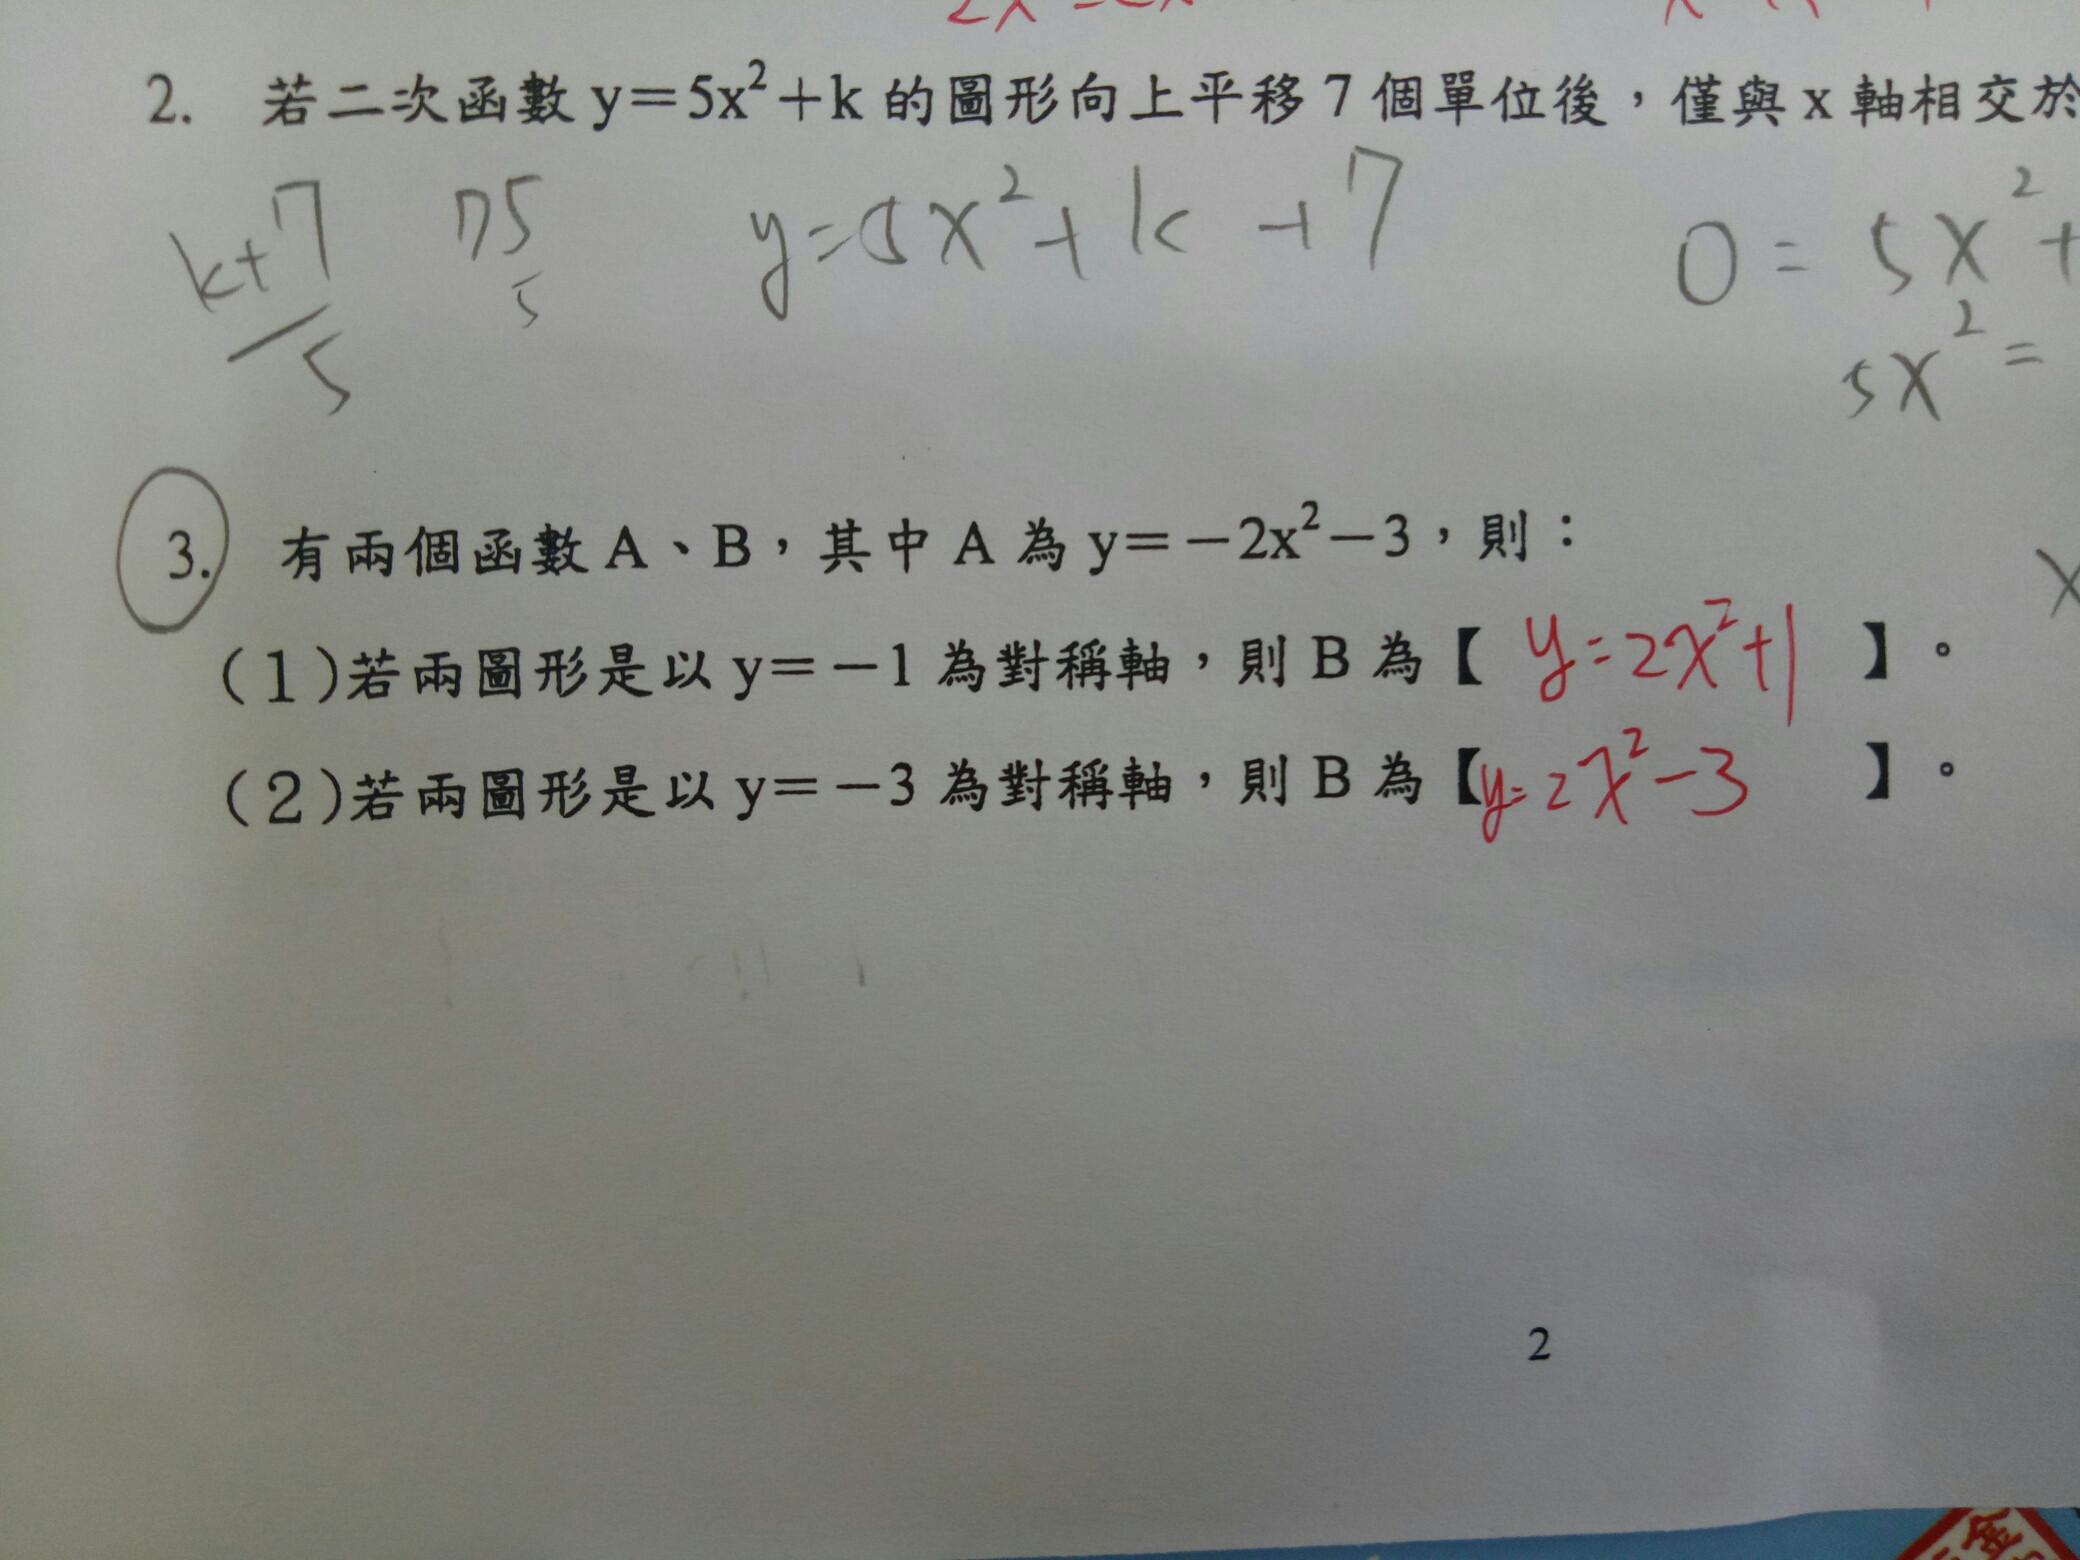 2. 若二次函數 y=5x²+k 的圖形向上平移 7 個單位後，僅與 x 軸相交於
k+7/5 75 y=5x²+k+7 0=5x²+
5 5x²=
3. 有兩個函數 A、B，其中 A 為 y=－2x²－3，則：
x
(1)若兩圖形是以 y=－1 為對稱軸，則 B 為【 y=2x²+1 】。
(2)若兩圖形是以 y=－3 為對稱軸，則 B 為【y=2x²-3 】。
2